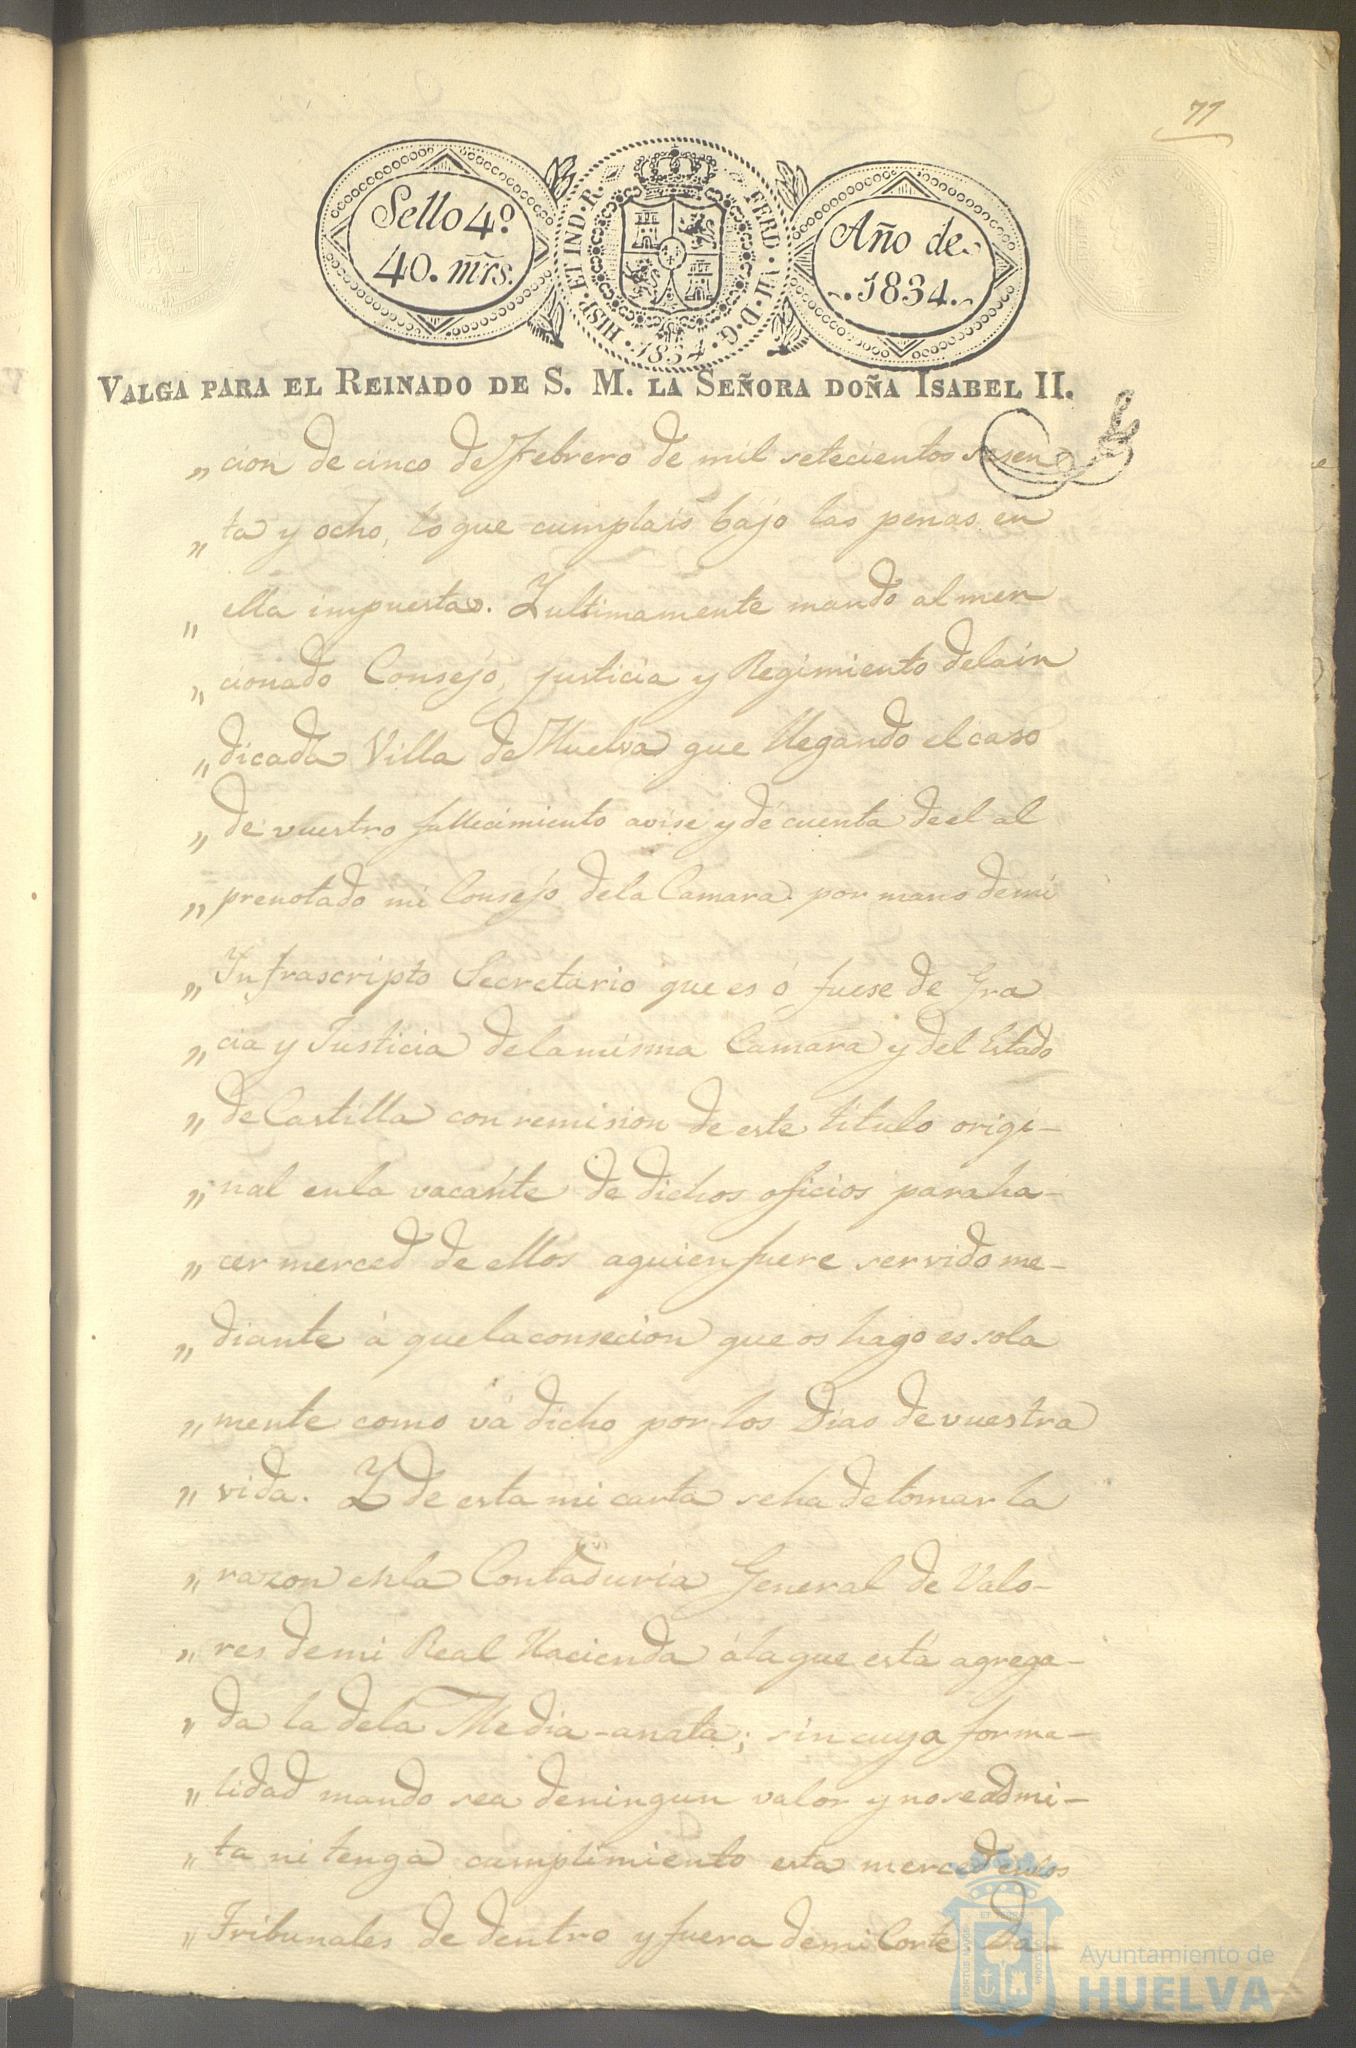 77
Sello 4º
40. mrs.
HISP. ET IND. R.
FERD. VII. D. G.
1834
Año de
1834.
VALGA PARA EL REINADO DE S. M. LA SEÑORA DOÑA ISABEL II.
„ cion de cinco de Febrero de mil setecientos sesen
„ ta y ocho, lo que cumplais bajo las penas en
„ ella impuestas. Y ultimamente mando al men
„ cionado Consejo, justicia y Regimiento dela in
„ dicada Villa de Huelva que llegando el caso
„ de vuestro fallecimiento avise y dé cuenta de el al
„ prenotado mi Consejo dela Camara por mano demi
„ Infrascripto Secretario que es ó fuese de Gra
„ cia y Justicia dela misma Camara y del Estado
„ de Castilla con remision de este titulo origi-
„ nal enla vacante de dichos oficios para ha-
„ cer merced de ellos aquien fuere servido me-
„ diante á que la consecion que os hago es sola
„ mente como vá dicho por los Dias de vuestra
„ vida. Y de esta mi carta seha detomar la
„ razon enla Contaduria General de Valo-
„ res demi Real Hacienda álaque está agrega-
„ da la dela Media-anata; sin cuya forma-
„ lidad mando sea deningun valor y no seadmi-
„ ta ni tenga cumplimiento esta merced enlos
„ Tribunales de dentro y fuera demi Corte Da-
Ayuntamiento de
HUELVA